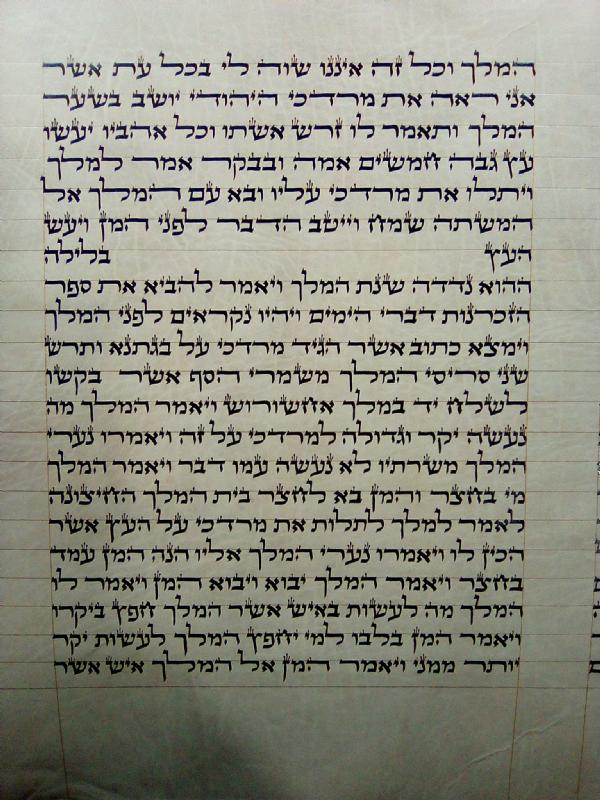 המלך וכל זה איננו שוה לי בכל עת אשר
אני ראה את מרדכי היהודי יושב בשער
המלך ותאמר לו זרש אשתו וכל אהביו יעשו
עץ גבה חמשים אמה ובבקר אמר למלך
ויתלו את מרדכי עליו ובא עם המלך אל
המשתה שמח וייטב הדבר לפני המן ויעש
העץ בלילה
ההוא נדדה שנת המלך ויאמר להביא את ספר
הזכרנות דברי הימים ויהיו נקראים לפני המלך
וימצא כתוב אשר הגיד מרדכי על בגתנא ותרש
שני סריסי המלך משמרי הסף אשר בקשו
לשלח יד במלך אחשורוש ויאמר המלך מה
נעשה יקר וגדולה למרדכי על זה ויאמרו נערי
המלך משרתיו לא נעשה עמו דבר ויאמר המלך
מי בחצר והמן בא לחצר בית המלך החיצונה
לאמר למלך לתלות את מרדכי על העץ אשר
הכין לו ויאמרו נערי המלך אליו הנה המן עמד
בחצר ויאמר המלך יבוא ויבוא המן ויאמר לו
המלך מה לעשות באיש אשר המלך חפץ ביקרו
ויאמר המן בלבו למי יחפץ המלך לעשות יקר
יותר ממני ויאמר המן אל המלך איש אשר